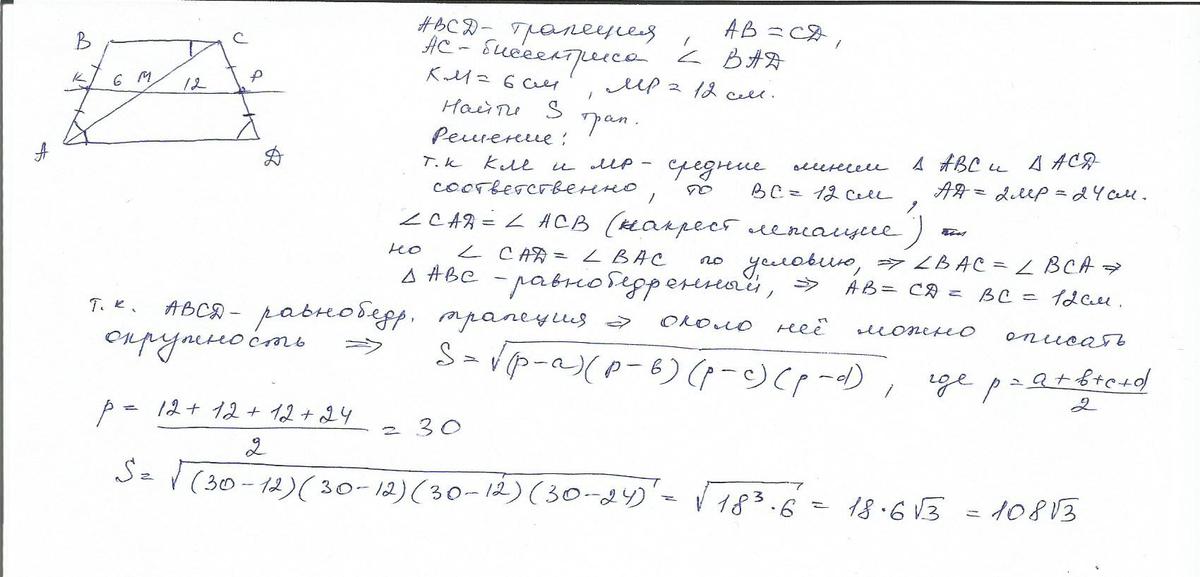 B C
K 6 M 12 P
A D
ABCD - трапеция, AB = CD,
AC - биссектриса ∠ BAD
KM = 6 см, MP = 12 см.
Найти S трап.
Решение:
т.к KM и MP - средние линии Δ ABC и Δ ACD
соответственно, то BC = 12 см, AD = 2MP = 24 см.
∠CAD = ∠ ACB (накрест лежащие)
но ∠ CAD = ∠ BAC по условию, ⇒ ∠BAC = ∠ BCA ⇒
Δ ABC - равнобедренный, ⇒ AB = CD = BC = 12 см.
т. к. ABCD - равнобедр. трапеция ⇒ около неё можно описать
окружность ⇒ S = √(p-a)(p-b)(p-c)(p-d), где p = a+b+c+d / 2
p = 12+12+12+24 / 2 = 30
S = √(30-12)(30-12)(30-12)(30-24) = √18³·6 = 18·6√3 = 108√3